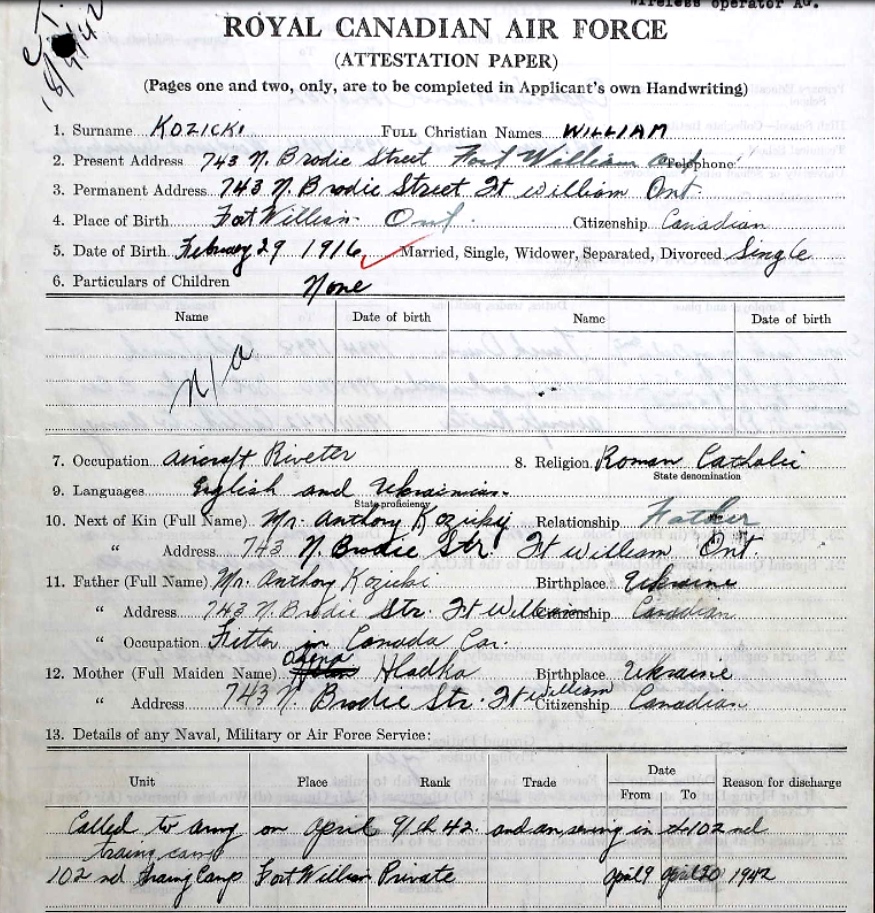 Wireless operator AG.
18/4/42
ROYAL CANADIAN AIR FORCE
(ATTESTATION PAPER)
(Pages one and two, only, are to be completed in Applicant's own Handwriting)
1. Surname KOZICKI FULL Christian Names WILLIAM
2. Present Address 743 N. Brodie Street Fort William Ont Telephone
3. Permanent Address 743 N. Brodie Street Ft William Ont.
4. Place of Birth Fort William Ont. Citizenship Canadian
5. Date of Birth February 29 1916 Married, Single, Widower, Separated, Divorced Single
6. Particulars of Children None
Name Date of birth Name Date of birth
N/A
7. Occupation Aircraft Riveter 8. Religion Roman Catholic
State denomination
9. Languages English and Ukrainian
State proficiency
10. Next of Kin (Full Name) Mr. Anthony Relationship Father
" Address 743 N. Brodie Str. Ft William Ont.
11. Father (Full Name) Mr. Anthony Kozicki Birthplace Ukraine
" Address 743 N. Brodie Str. Ft William Citizenship Canadian
" Occupation Fitter in Canada Car.
12. Mother (Full Maiden Name) Hladka Birthplace Ukraine
" Address 743 N. Brodie Str. Ft William Citizenship Canadian
13. Details of any Naval, Military or Air Force Service:
Unit Place Rank Trade Date From To Reason for discharge
Called to army on April 9/th 42 and am serving in the 102 nd
training camp
102 nd Traing Camp Fort William Private April 9 April 20 1942